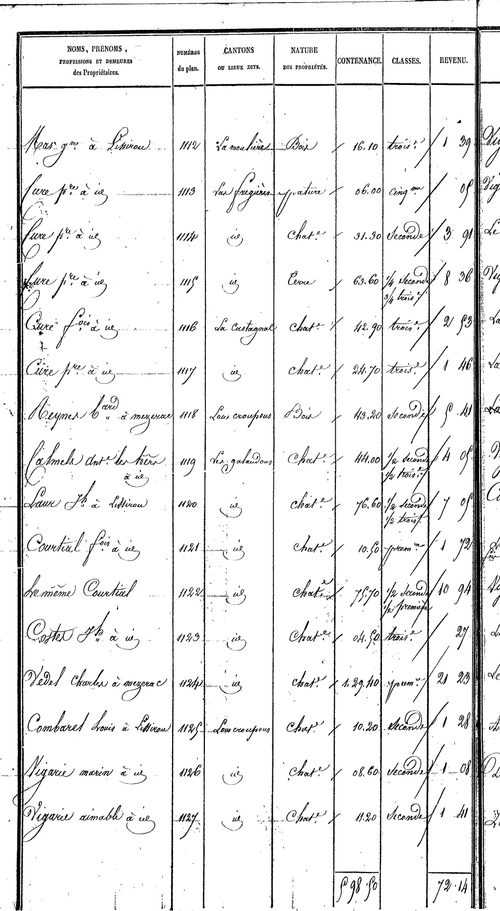 NOMS, PRÉNOMS, PROFESSIONS ET DEMEURES des Propriétaires. NUMÉROS du plan. CANTONS OU LIEUX DITS. NATURE DES PROPRIÉTÉS. CONTENANCE. CLASSES. REVENU.
Mas g.me à Lissirou 1112 La moulière Bois 16.10 trois.e 1 39
Cure p.re à id 1113 Las fregières pature 06.00 cinq.me 05
Cure p.re à id 1114 id Chat.e 31.30 Seconde 3 91
Cure p.re à id 1115 id Erme 63.60 1/4 Seconde 3/4 trois.e 8 36
Cure f.ois à id 1116 La Castagnal Chat.e 42.90 trois.e 2 53
Cure p.re à id 1117 id chat.e 24.70 trois.e 1 46
Reynes b.ard à mezerac 1118 Lous croupous Bois 43.20 Seconde 5 41
Calmels ant.e les hers à id 1119 Les galandous Chat.e 44.00 1/2 Seconde 1/2 trois.e 4 05
Laur J.h à Lissirou 1120 id chat.e 76.60 1/2 Seconde 1/2 trois.e 7 05
Courtiul f.ois à id 1121 id chat.e 10.50 prem.re 1 72
Le même Courtiul 1122 id Chat.e 75.70 1/2 Seconde 1/2 première 10 94
Costes J.h à id 1123 id Chat.e 04.50 trois.e 27
Vedel Charles à mezerac 1124 id chat.e 1.29.40 prem.re 21 23
Combaret Louis à Lissirou 1125 Lous croupous chat.e 10.20 Seconde 1 28
Vigarie marin à id 1126 id chat.e 08.60 Seconde 1 08
Vigarie aimable à id 1127 id Chat.e 11.20 Seconde 1 41
5 98.50 72.14